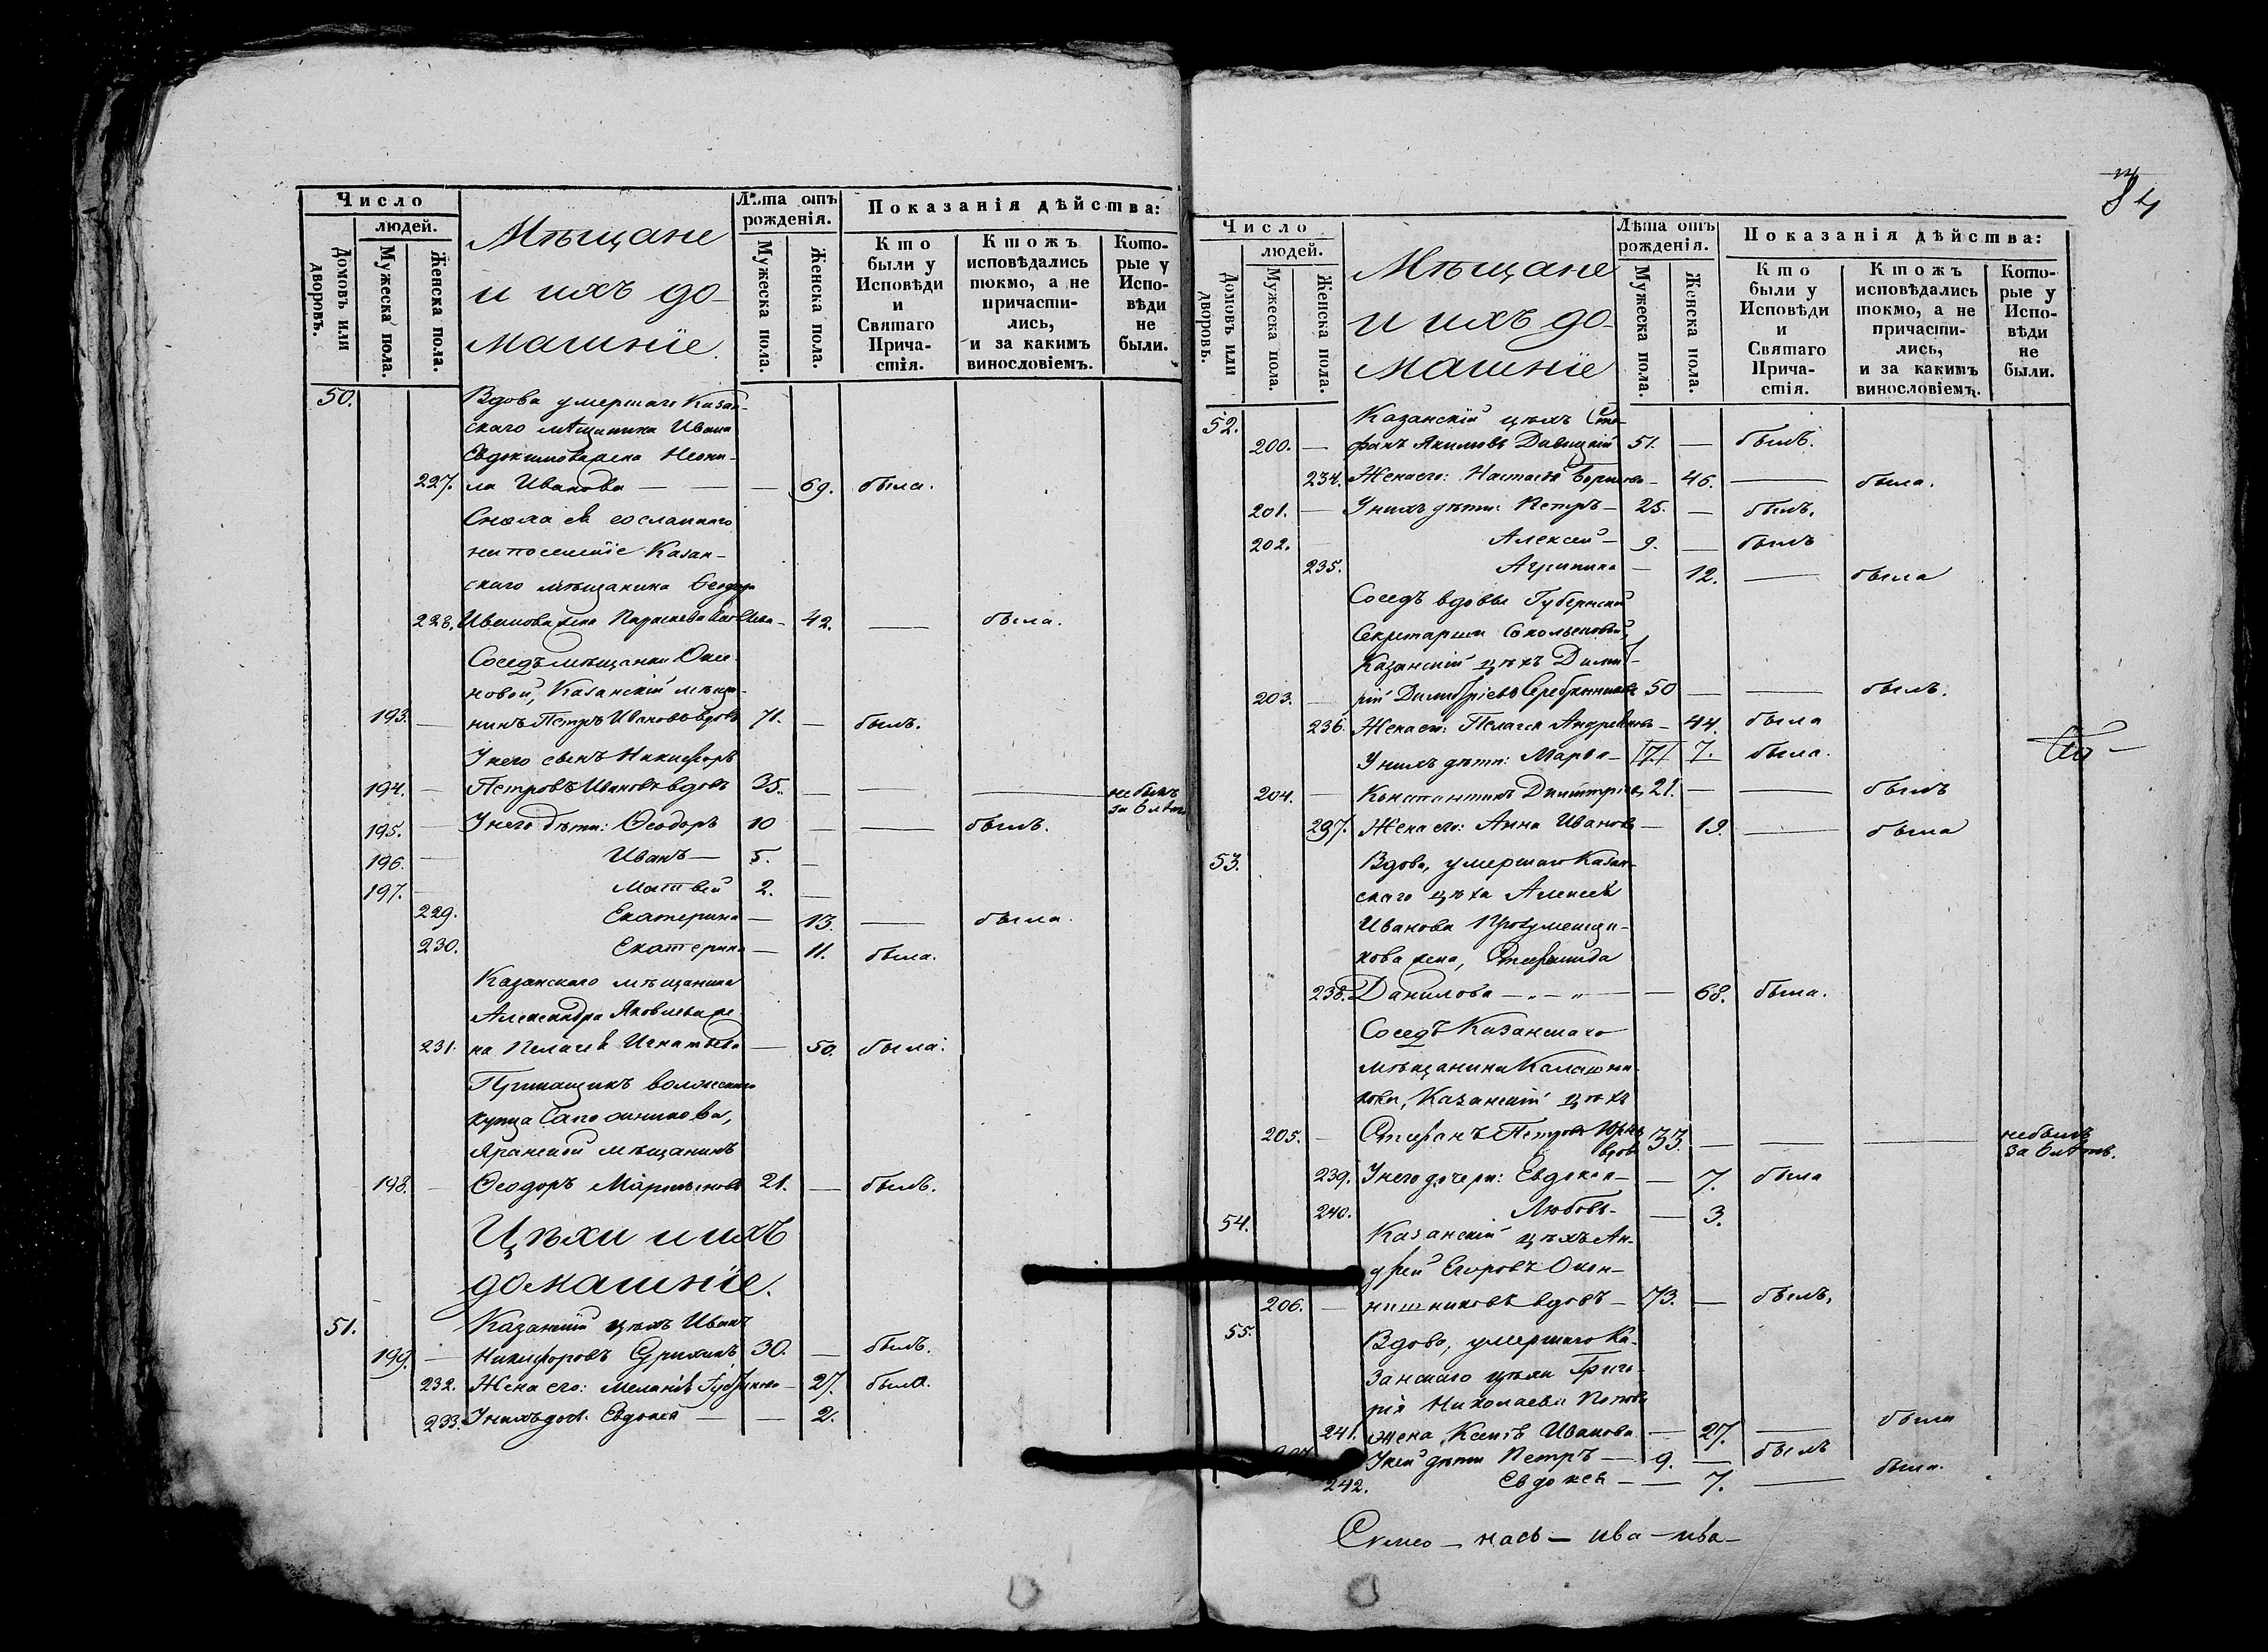 Число
людей.
Домовъ или дворовъ.
Мужеска пола.
Женска пола.
Мѣщане
и ихъ до-
машніе.
Лѣта отъ
рожденія.
Мужеска пола.
Женска пола.
Показанія дѣйства:
Кто были у Исповѣди и Святаго Прича-стія.
Ктожъ исповѣдались токмо, а не причасти-лись, и за какимъ винословіемъ.
Кото-рые у Испо-вѣди не были.
50. Вдова умершаго Казан-
скаго мѣщанина Ивана
Евдокимова жена Неони-
227. ла Иванова — — — 69. была.
Сноха ея сосланнаго
на поселеніе Казан-
скаго мѣщанина Ѳеодора
228. Иванова жена Параскева — 42. — была.
Соседъ мѣщанки
новой, Казанскій мѣща-
193. — нинъ Петръ Ивановъ вдовъ 71. — былъ.
У него сынъ Никифоръ
194. — Петровъ Ивановъ вдовъ 35. — — — не былъ
за 6 лѣтъ
195. — У него дѣти: Ѳеодоръ 10 — — былъ.
196. — Иванъ — 5. —
197. — Матвей 2. —
229. Екатерина — 13. — была.
230. Екатерина — 11. была.
Казанскаго мѣщанина
Александра Яковлева же-
231. на Пелагея Игнатьева — 50. была.
Прикащикъ волжскаго
купца Сапожникова,
Яранской мѣщанинъ
198. — Ѳеодоръ 21. — былъ.
Цѣхи и ихъ
домашніе.
51. Казанскій цѣхъ Иванъ
199. — Никифоровъ 30. — былъ.
232. Жена его: Меланія — 27. была.
233. У нихъ доч. Евдокея — — 2.
84
Число
людей.
Домовъ или дворовъ.
Мужеска пола.
Женска пола.
Мѣщане
и ихъ до-
машніе
Лѣта отъ
рожденія.
Мужеска пола.
Женска пола.
Показанія дѣйства:
Кто были у Исповѣди и Святаго Прича-стія.
Ктожъ исповѣдались токмо, а не причасти-лись, и за какимъ винословіемъ.
Кото-рые у Испо-вѣди не были.
52. Казанскій цѣхъ Сте-
200. — фанъ Якимовъ 51. — былъ.
234. Жена его: Настасья — 46. — была.
201. — У нихъ дѣти: Петръ — 25. — былъ.
202. — Алексей — 9. — былъ
235. Агрипина — 12. — была
Соседъ вдовы Губернской
Секретарши
Казанскій цѣхъ Димит-
203. — рій Димитріевъ Серебрениковъ 50 — — былъ.
236. Жена его: Пелагея Андреянова — 44. была
У нихъ дѣти: Марѳа — 7. 7. была.
204. — Константинъ Димитріевъ 21. — — былъ
297. Жена его: Анна Иванова — 19. — была
53. Вдова, умершаго Казан-
скаго цѣха Алексея
Иванова
кова жена, Стефанида
238. Данилова — — — 68. была.
Соседъ Казанскаго
мѣщанина Калашни-
кова, Казанскій цѣхъ
205. — Стефанъ Петровъ
вдовъ 33. — — — не былъ
за 6 лѣтъ.
239. У него дочери: Евдокея — — 7. была
240. Любовь — — 3.
54. Казанскій цѣхъ Ан-
дрей Егоровъ Окон-
206. — нишниковъ вдовъ — 73. — былъ.
55. Вдова, умершаго Ка-
занскаго цѣха Григо-
рія Николаева Попова
241. жена Ксенія Иванова — 27. — была
У ней дѣти Петръ — 9. — былъ
242. Евдокея — — 7. — была.